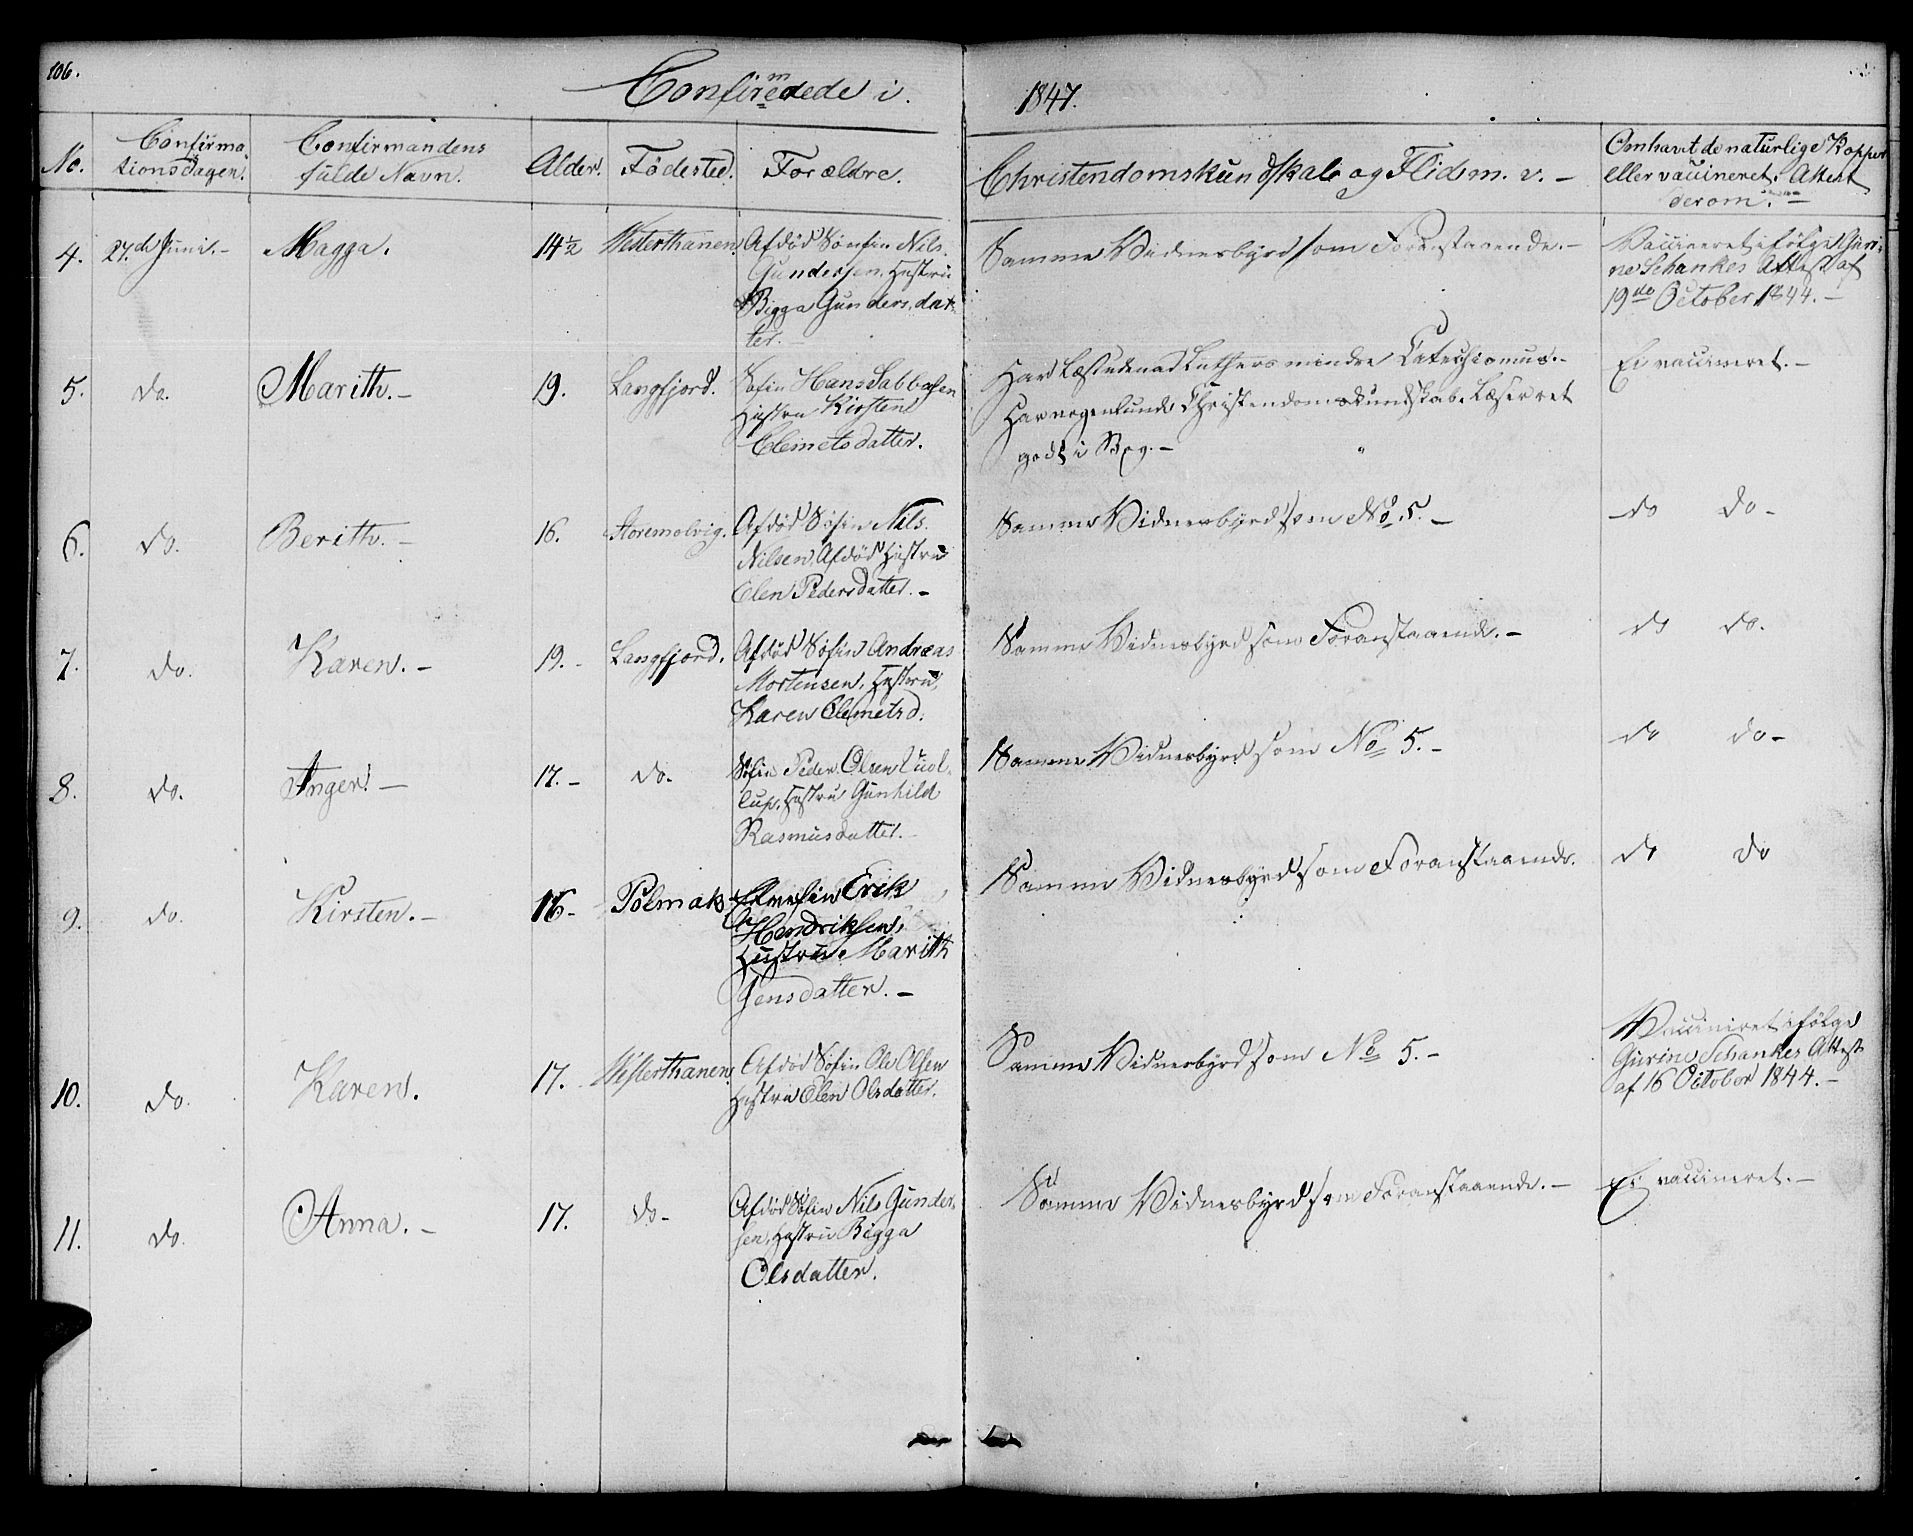 106.
Confirmerede i
1847.
No.
Confirma-
tionsdagen.
Confirmandens
fulde Navn.
Alder.
Fødested.
Forældre.
Christendomskundskab og Flid m. v. –
Om havt de naturlige Kopper
eller vaccineret. Attest
derom.
4.
27.de Juni. –
Magga.
14½
Vesterthanen.
Afdød Søfin Nils
Gundersen, Hustru
Bigga Gunders dat-
ter.
Samme Vidnesbyrd som Foranstaaende. –
Vaccineret ifølge Guri-
ne Schankes Attest af
19de October 1844. –
5.
do.
Marith. –
19.
Langfjord.
Søfin Hans Sabbasen
Hustru Kirsten
Clemetsdatter.
Har Læst udenad Luthers mindre Catechismus. –
Har nogenlunde Christendomskundskab. Læser ret
godt i Bog. –
Ei vaccineret. –
6.
do.
Berith. –
16.
Storemolvig.
Afdød Søfin Nils
Nilsen, Afdød Hustru
Elen Pedersdatter. –
Samme Vidnesbyrd som No. 5. –
do do –
7.
do.
Karen. –
19. –
Langfjord.
Afdød Søfin Andreas
Mortensen, Hustru
Karen Clemetsd.
Samme Vidnesbyrd som Foranstaaende. –
do do.
8.
do.
Inger. –
17. –
do.
Søfin Peder Olsen
Hustru Gunhild
Rasmusdatter. –
Samme Vidnesbyrd som No 5. –
do do –
9.
do.
Kirsten. –
16 –
Polmak
Erik
Hendriksen,
Hustru Marith
Jensdatter. –
Samme Vidnesbyrd som Foranstaaende.
do do
10.
do.
Karen.
17.
Vesterthanen.
Afdød Søfin Ole Olsen
Hustru Elen Olsdatter.
Samme Vidnesbyrd som No 5. –
Vaccineret ifølge
Gurine Schankes Attest
af 16 October 1844. –
11.
do.
Anna. –
17.
do –
Afdød Søfin Nils Gunder-
sen, Hustru Bigga
Olsdatter.
Samme Vidnesbyrd som Foranstaaende. –
Ei vaccineret. –